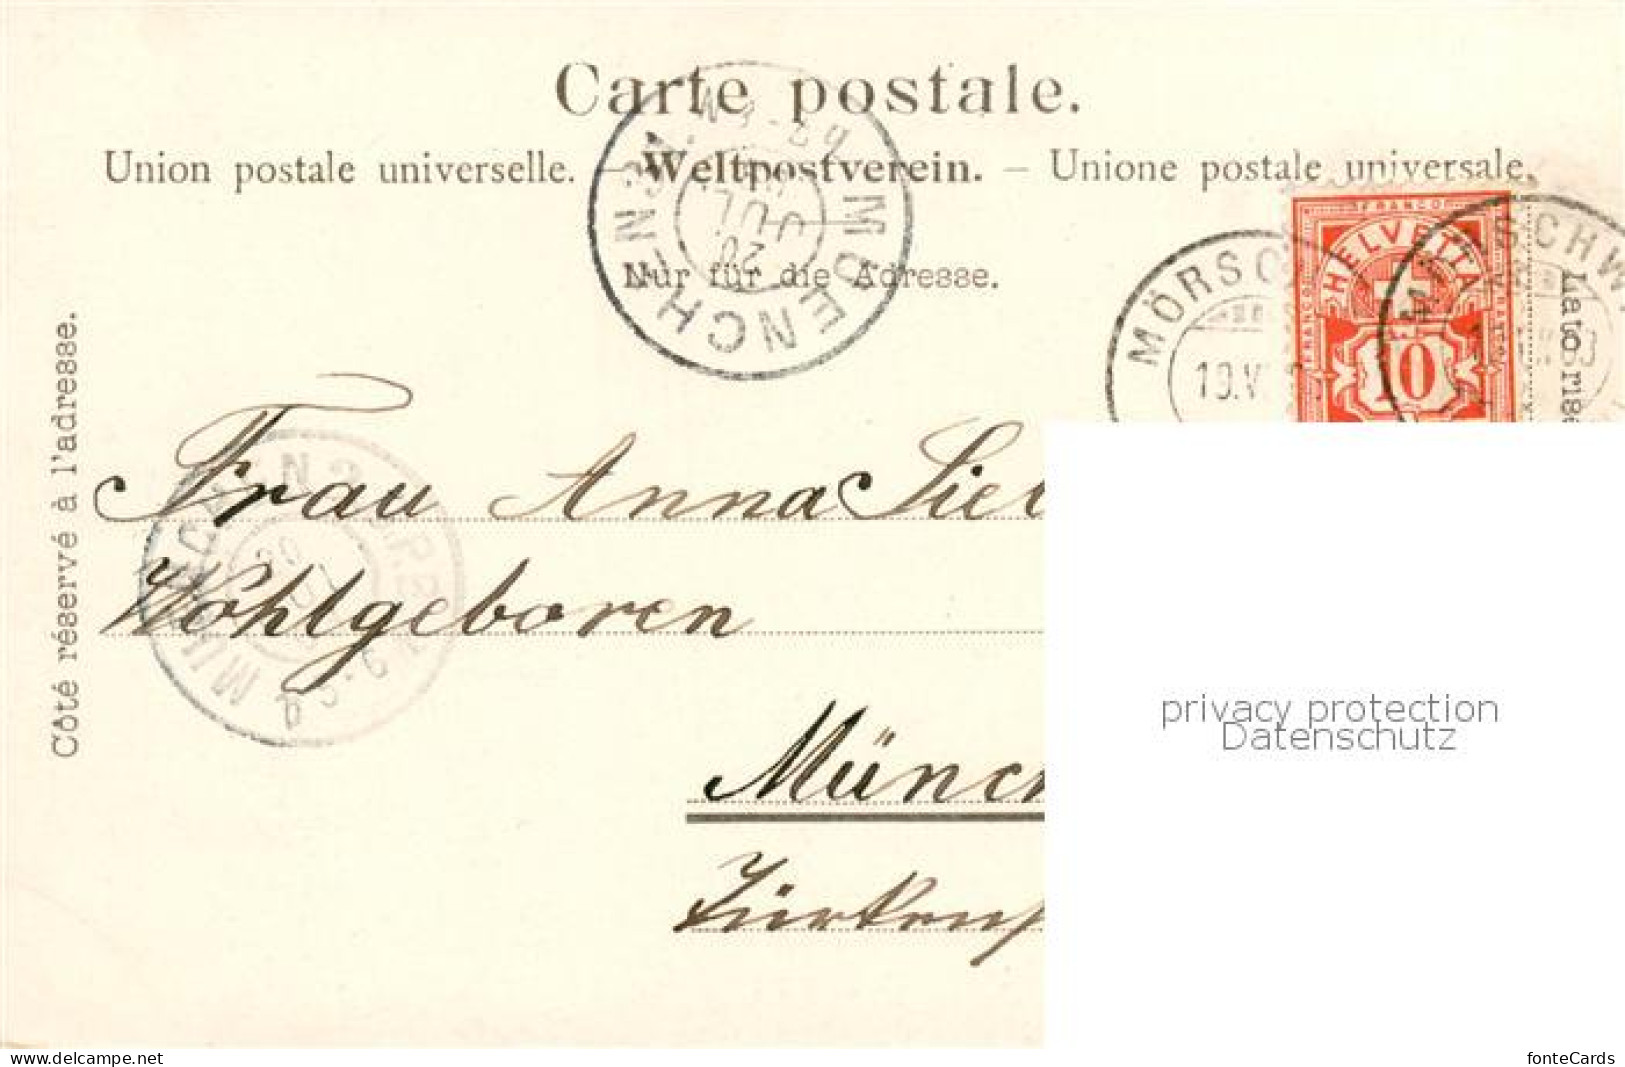 Carte postale.
Union postale universelle. – Weltpostverein. – Unione postale universale.
Nur für die Adresse.
Côté réservé à l'adresse.
MUENCHEN
20
JUL
MÖRSCHW
19.V
FRANCO
HELVETIA
FRANCO
10
Frau Anna
Wohlgeboren
Münch
privacy protection
Datenschutz
www.delcampe.net
fonteCards